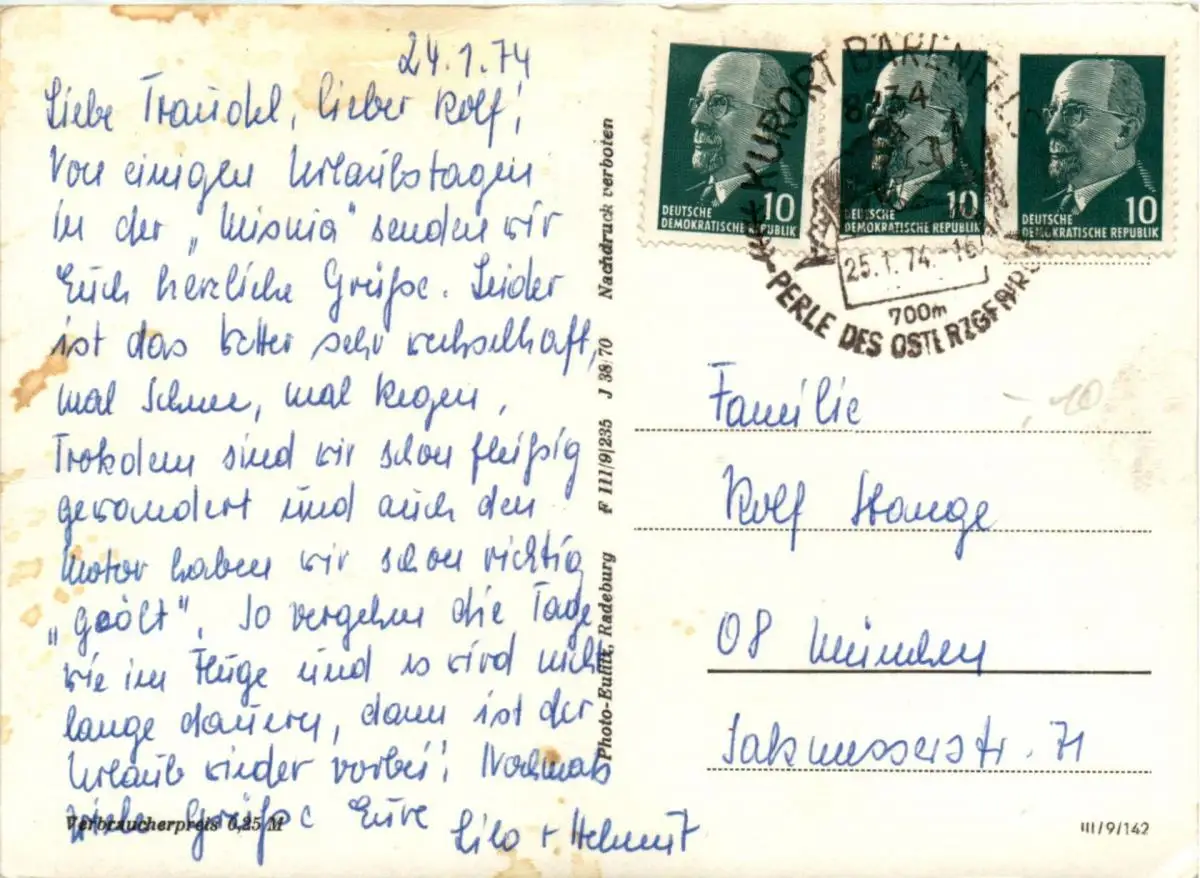 24.1.74
Liebe Traudel, lieber Rolf!
Von einigen Urlaubstagen
in der „Misnia" senden wir
Euch herzliche Grüße. Leider
ist das Wetter sehr wechselhaft,
mal Schnee, mal Regen,
Trotzdem sind wir schon fleißig
gewandert und auch den
Motor haben wir schon richtig
„geölt". So vergehen die Tage
wie im Fluge und es wird nicht
lange dauern, dann ist der
Urlaub wieder vorbei! Nochmals
viele Grüße Eure
Lilo + Helmut
Verbraucherpreis 0,25 M
Photo-Eulitz, Radeburg F III/9/235 J 38/70 Nachdruck verboten
DEUTSCHE
DEMOKRATISCHE REPUBLIK
10
DEUTSCHE
DEMOKRATISCHE REPUBLIK
10
DEUTSCHE
DEMOKRATISCHE REPUBLIK
10
KURORT BÄRENFELS
25.1.74.-16
700m
PERLE DES OSTERZGEBIRGES
-,10
Familie
Rolf Stange
08 München
III/9/142